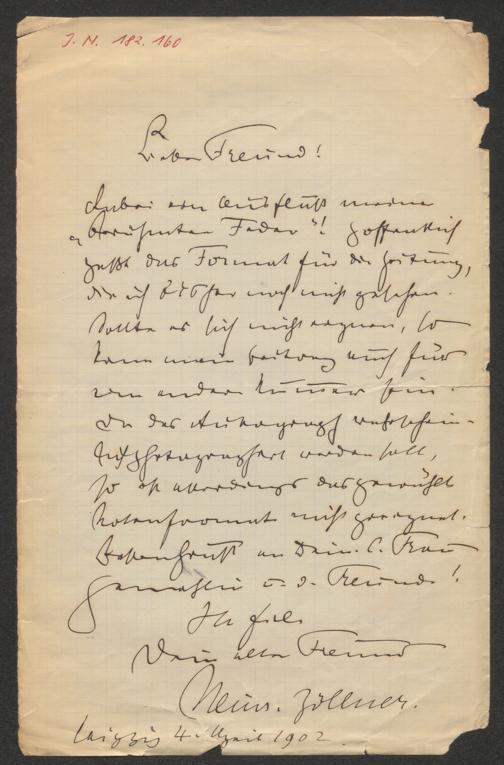 J. N. 182.160
Lieber Freund!
Anbei ein Ausfluß meiner
„berühmten Feder"! Hoffentlich
paßt das Format für die Zeitung,
die ich bisher noch nicht gesehen.
Sollte es sich nicht eignen, so
kann mein Beitrag auch für
eine andere Nummer sein.
Da das Autograph wahrschein-
lich photographiert werden soll,
so ist allerdings das gewählte
Notenformat nicht geeignet.
an Deine l. Frau
Gemahlin u. d. Freunde!
In Eile
Dein alter Freund
Heinr. Zöllner.
Leipzig 4. April 1902.